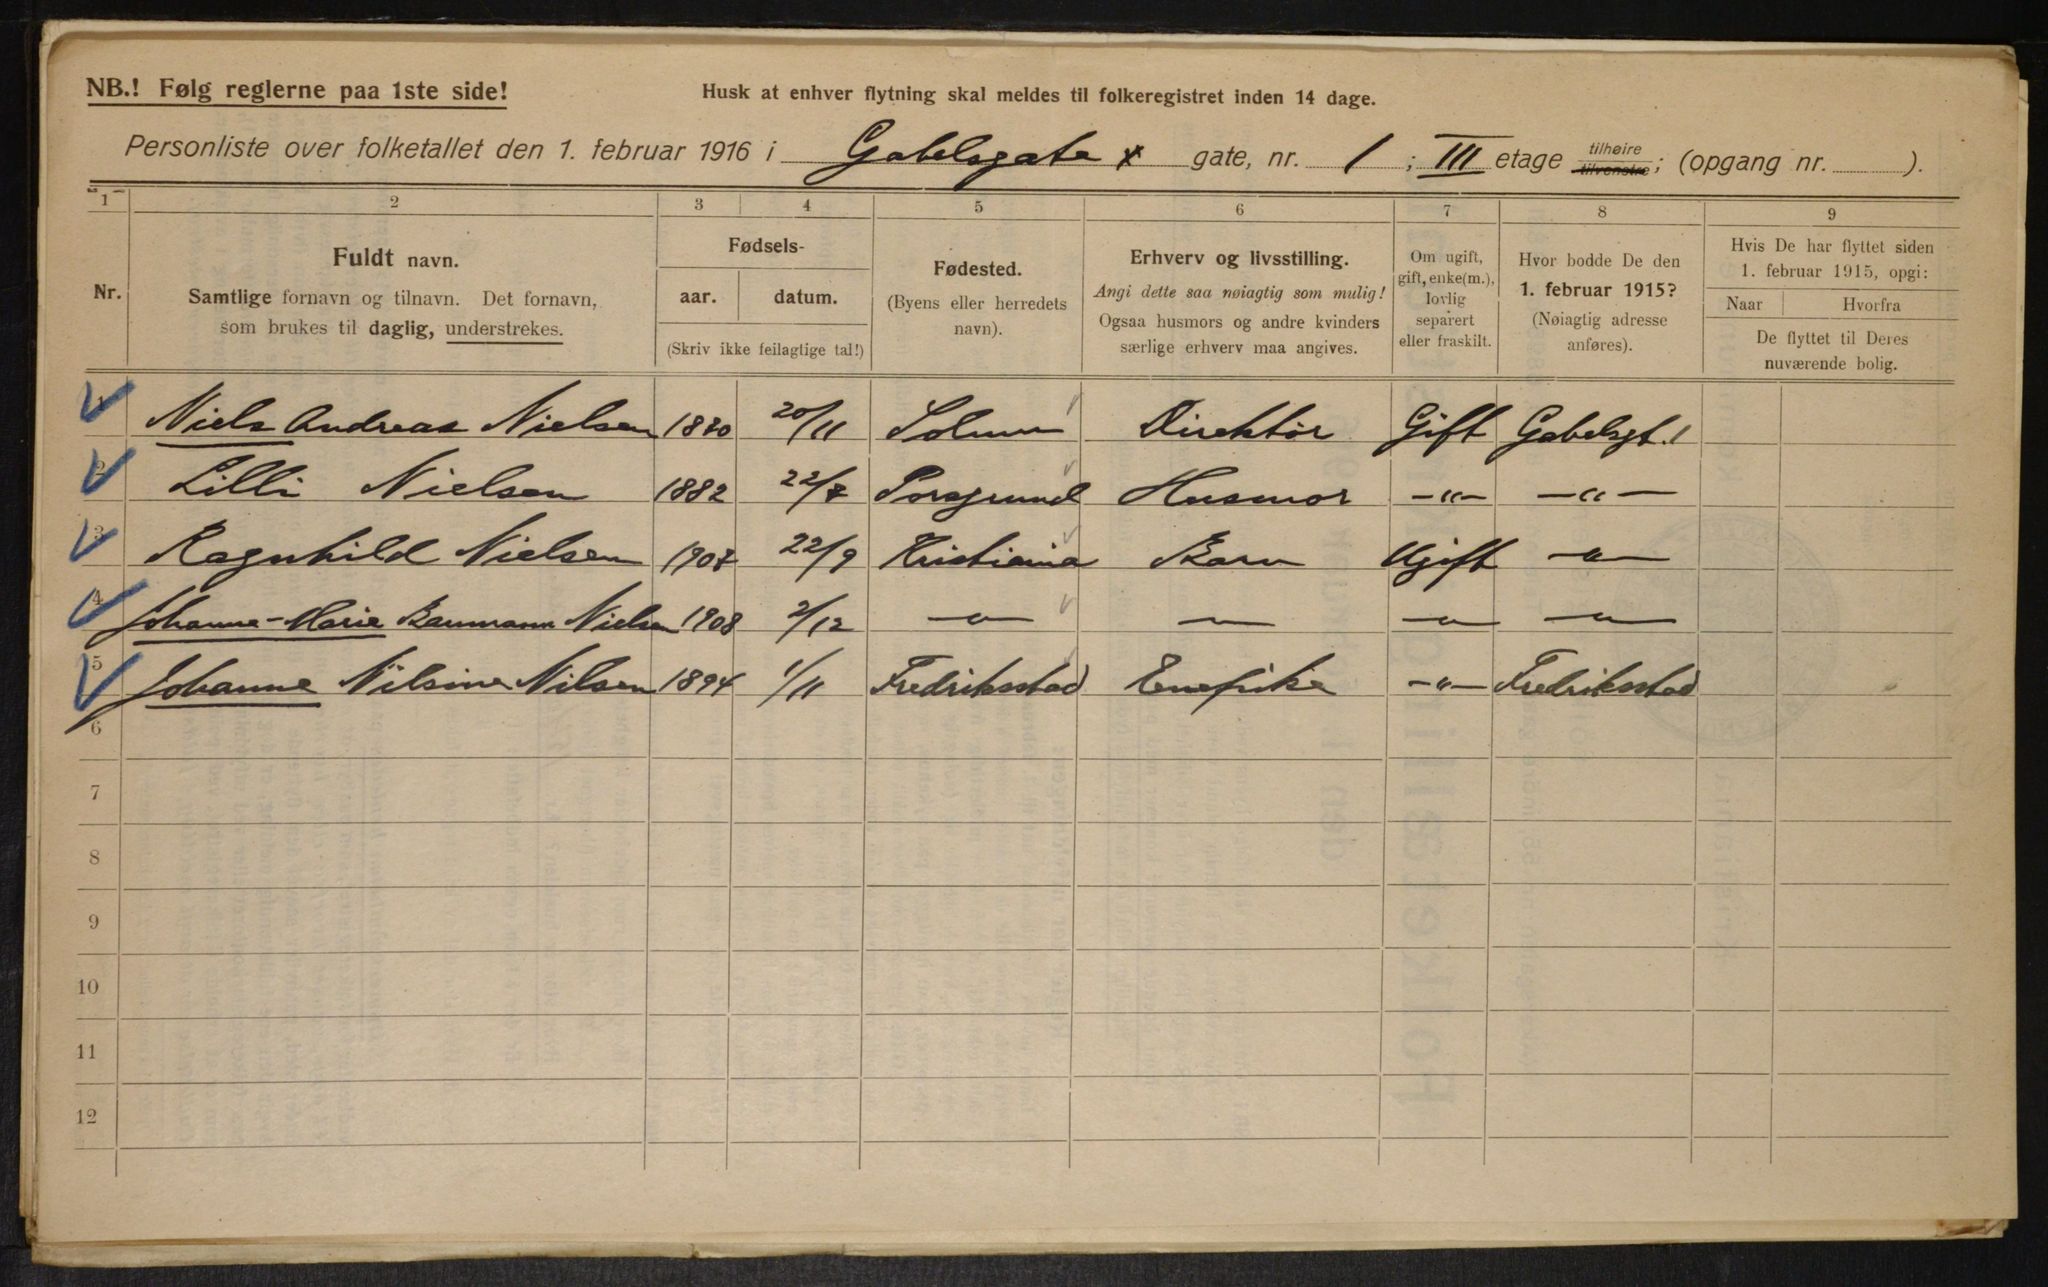 NB.! Følg reglerne paa 1ste side!
Husk at enhver flytning skal meldes til folkeregistret inden 14 dage.
Personliste over folketallet den 1. februar 1916 i Gabelsgate x gate, nr. 1; III etage tilhøire tilvenstre; (opgang nr. ).
1 2 3 4 5 6 7 8 9
Nr.
Fuldt navn.
Samtlige fornavn og tilnavn. Det fornavn,
som brukes til daglig, understrekes.
Fødsels-
aar. datum.
(Skriv ikke feilagtige tal!)
Fødested.
(Byens eller herredets
navn).
Erhverv og livsstilling.
Angi dette saa nøiagtig som mulig!
Ogsaa husmors og andre kvinders
særlige erhverv maa angives.
Om ugift,
gift, enke(m.),
lovlig
separert
eller fraskilt.
Hvor bodde De den
1. februar 1915?
(Nøiagtig adresse
anføres).
Hvis De har flyttet siden
1. februar 1915, opgi:
Naar Hvorfra
De flyttet til Deres
nuværende bolig.
1 Niels Andreas Nielsen 1870 20/11 Solum Direktør Gift Gabelsgt. 1
2 Lilli Nielsen 1882 22/7 Porsgrund Husmor -"- -"-
3 Ragnhild Nielsen 1907 22/9 Kristiania Barn Ugift -"-
4 Johanne-Marie Baumann Nielsen 1908 2/12 -"- -"- -"- -"-
5 Johanne Nilsine Nilsen 1894 1/11 Fredriksstad Enepike -"- Fredriksstad
6
7
8
9
10
11
12